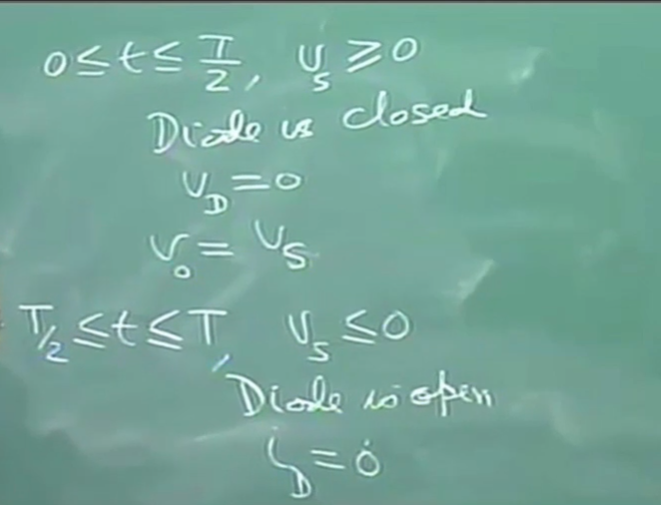 0 ≤ t ≤ T/2, v_s ≥ 0
Diode is closed
v_D = 0
v_o = v_s
T/2 ≤ t ≤ T, v_s ≤ 0
Diode is open
i_D = 0